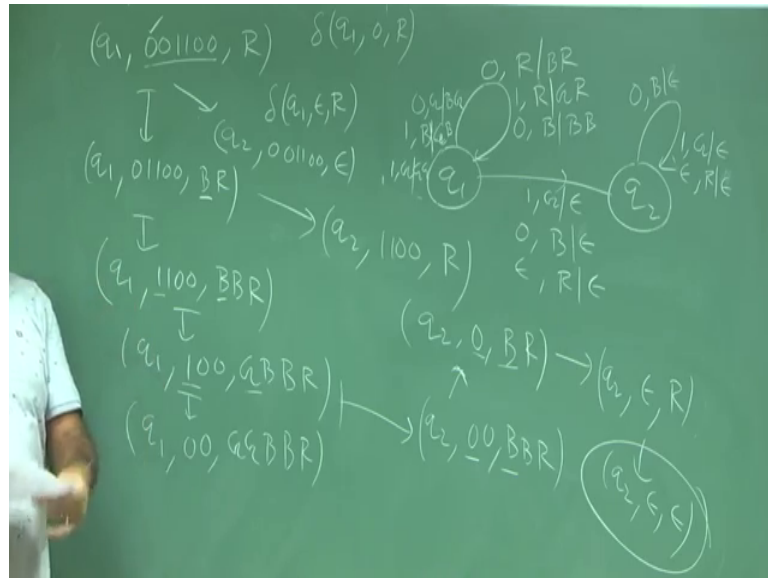 (q₁, 001100, R)
δ(q₁, 0, R)
δ(q₁, ε, R)
(q₂, 001100, ε)
(q₁, 01100, BR)
(q₂, 1100, R)
(q₁, 1100, BBR)
(q₁, 100, GBBR)
(q₁, 00, GGBBR)
(q₂, 00, BBR)
(q₂, 0, BR)
(q₂, ε, R)
(q₂, ε, ε)
0, R|BR
1, R|GR
0, B|BB
0, G|BG
1, B|GB
1, G|GG
q₁
1, G|ε
0, B|ε
ε, R|ε
q₂
0, B|ε
1, G|ε
ε, R|ε